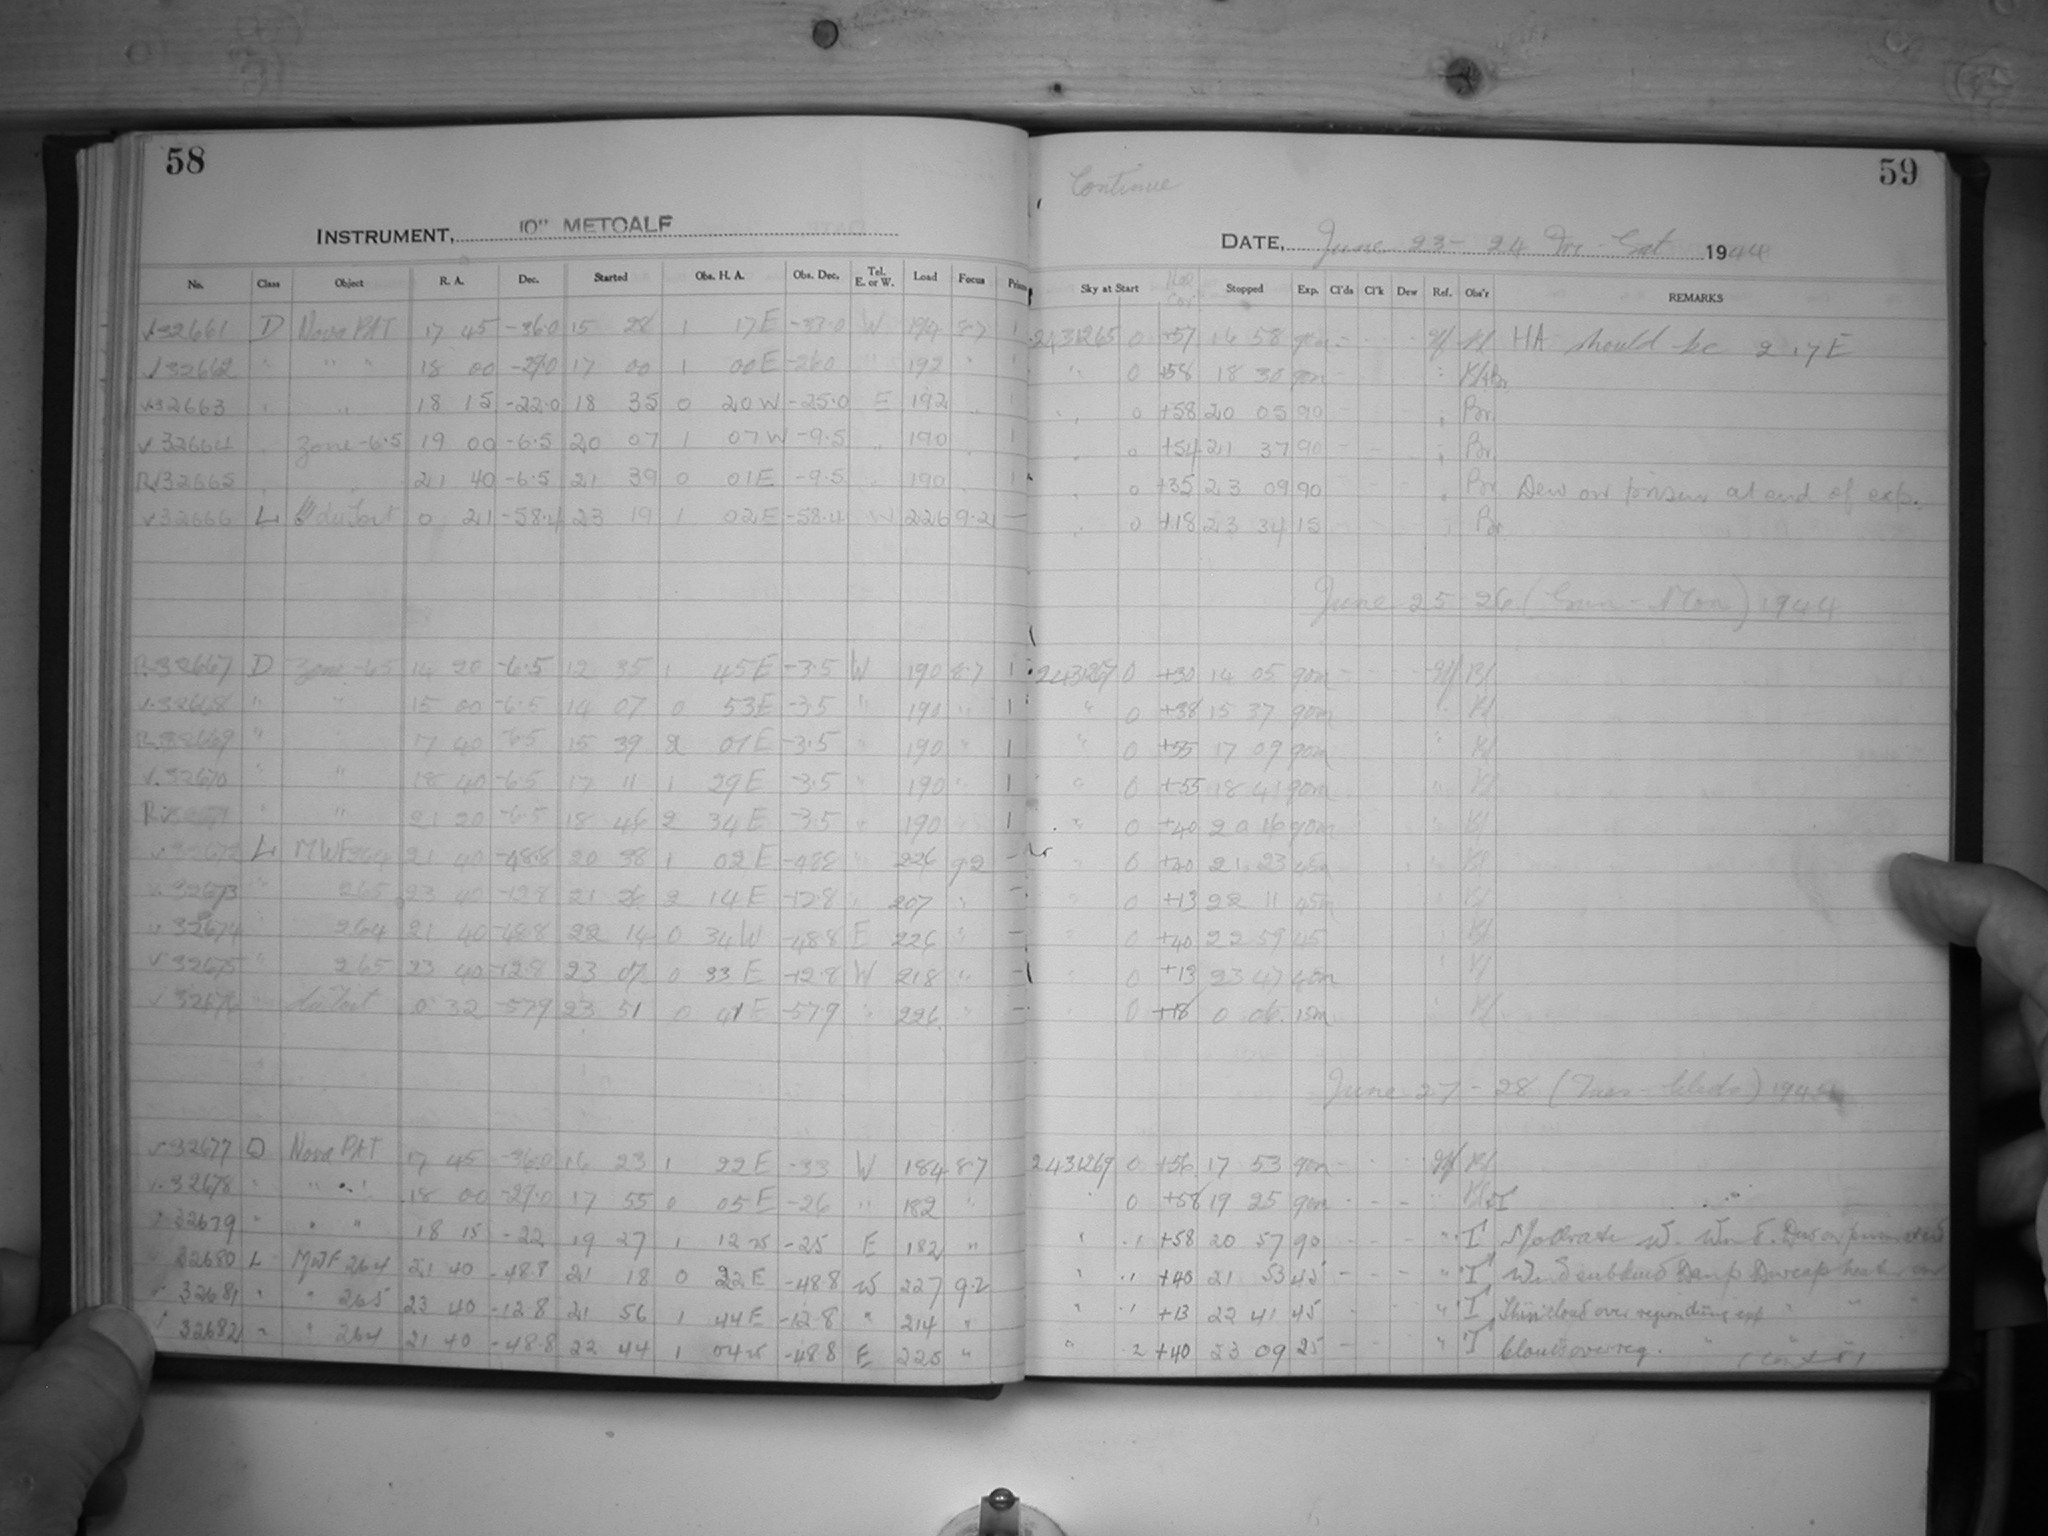 58
INSTRUMENT, 10" METCALF
No. Class Object R. A. Dec. Started Obs. H. A. Obs. Dec. Tel. E. or W. Load Focus
32661 D Nova PAT 17 45 -36.0 15 28 1 17 E -33.0 W 194 8.7 1
32662 " " " 18 00 -29.0 17 00 1 00 E -26.0 " 192 "
32663 18 15 -22.0 18 35 0 20 W -25.0 E 192
32664 Zone -6.5 19 00 -6.5 20 07 1 07 W -9.5 190
R 32665 21 40 -6.5 21 39 0 01 E -9.5 190
32666 L du Toit 0 21 -58.4 23 19 1 02 E -58.4 W 226 9.2 -
R 32667 D Zone -6.5 14 20 -6.5 12 35 1 45 E -3.5 W 190 8.7 1
32668 " " 15 00 -6.5 14 07 0 53 E -3.5 " 190 " 1
R 32669 " " 17 40 -6.5 15 39 2 01 E -3.5 " 190 " 1
32670 " " 18 40 -6.5 17 11 1 29 E -3.5 " 190 " 1
R " " 21 20 -6.5 18 46 2 34 E -3.5 " 190 1
32672 L MWF 264 21 40 -48.8 20 38 1 02 E -48.8 " 226 9.2 -
32673 " 265 23 40 -12.8 21 26 2 14 E -12.8 " 207 " -
32674 264 21 40 -48.8 22 14 0 34 W -48.8 E 226 " -
32675 " 265 23 40 -12.8 23 07 0 33 E -12.8 W 218 " -
32676 du Toit 0 32 -57.9 23 51 0 41 E -57.9 " 226 " -
32677 D Nova PAT 17 45 -36.0 16 23 1 22 E -33 W 184 8.7
32678 " " " 18 00 -29.0 17 55 0 05 E -26 " 182 "
32679 " " " 18 15 -22 19 27 1 12 W -25 E 182 "
32680 L MWF 264 21 40 -48.8 21 18 0 22 E -48.8 W 227 9.2
32681 " " 265 23 40 -12.8 21 56 1 44 E -12.8 " 214 "
32682 " " 264 21 40 -48.8 22 44 1 04 W -48.8 E 225 "
59
Continue
DATE, June 23 - 24 Fri - Sat 1944
Sky at Start Stopped Exp. Cl'ds Cl'k Dew Ref. Obs'r REMARKS
2431265 0 +57 16 58 90m HA should be 2 17 E
" 0 +58 18 30 90m
0 +58 20 05 90 Br.
0 +54 21 37 90 Br.
0 +35 23 09 90 Br Dew on prism at end of exp.
0 +18 23 34 15 Br
June 25 - 26 (Sun - Mon) 1944
2431267 0 +30 14 05 90m
" 0 +38 15 37 90m
" 0 +55 17 09 90m
" 0 +55 18 41 90m
" 0 +40 20 16 90m
" 0 +40 21 23 45m
0 +13 22 11 45m
0 +40 22 59 45
0 +13 23 47 40m
0 +18 0 06 15m
June 27 - 28 (Tues - Weds) 1944
2431269 0 +56 17 53 90m
0 +58 19 25 90m
" .1 +58 20 57 90 Moderate W. Wind. Dew on prism at end
" .1 +40 21 53 45 Wind subdued Damp Dewcap heater on
" .1 +13 22 41 45 Thin cloud over region during exp " "
" .2 +40 23 09 25 Clouds over reg.